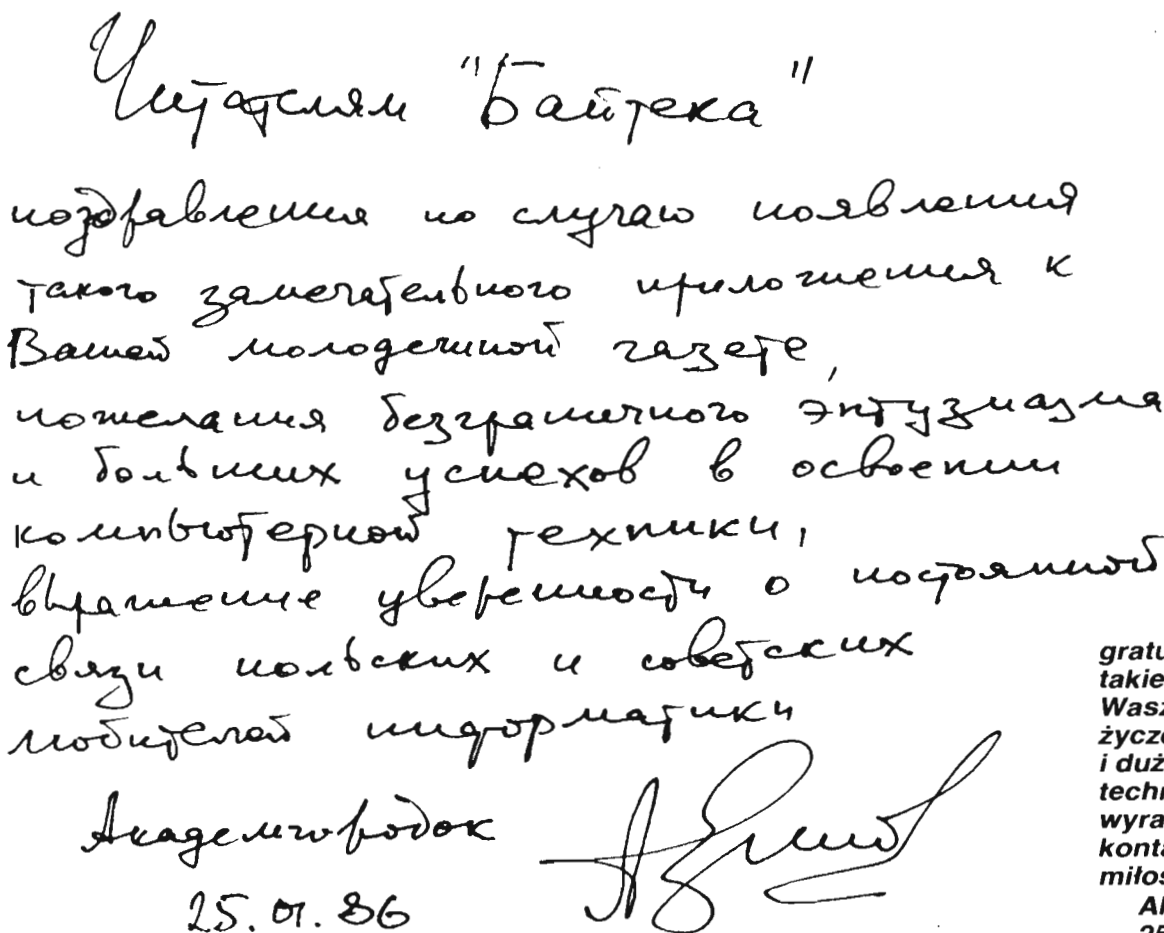 Читателям "Байтека"
поздравления по случаю появления
такого замечательного приложения к
Вашей молодежной газете,
пожелания безграничного энтузиазма
и больших успехов в освоении
компьютерной техники,
выражение уверенности о постоянной
связи польских и советских
любителей информатики
Академгородок
25.01.86
gratu
takie
Wasz
życze
i duż
techn
wyra
konta
miłoś